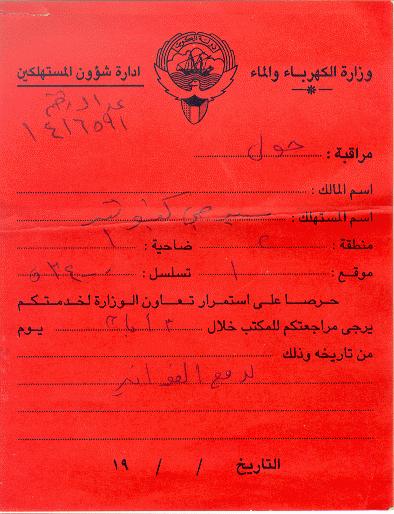 وزارة الكهرباء والماء
ادارة شؤون المستهلكين
دولة الكويت
١٤١٦٥٩١
مراقبة : حولي
اسم المالك :
اسم المستهلك :
منطقة : ضاحية : ١
موقع : ١ تسلسل :
حرصا على استمرار تعاون الوزارة لخدمتكم
يرجى مراجعتكم للمكتب خلال ٣ أيام يوم
من تاريخه وذلك
لدفع الفواتير
التاريخ / / ١٩